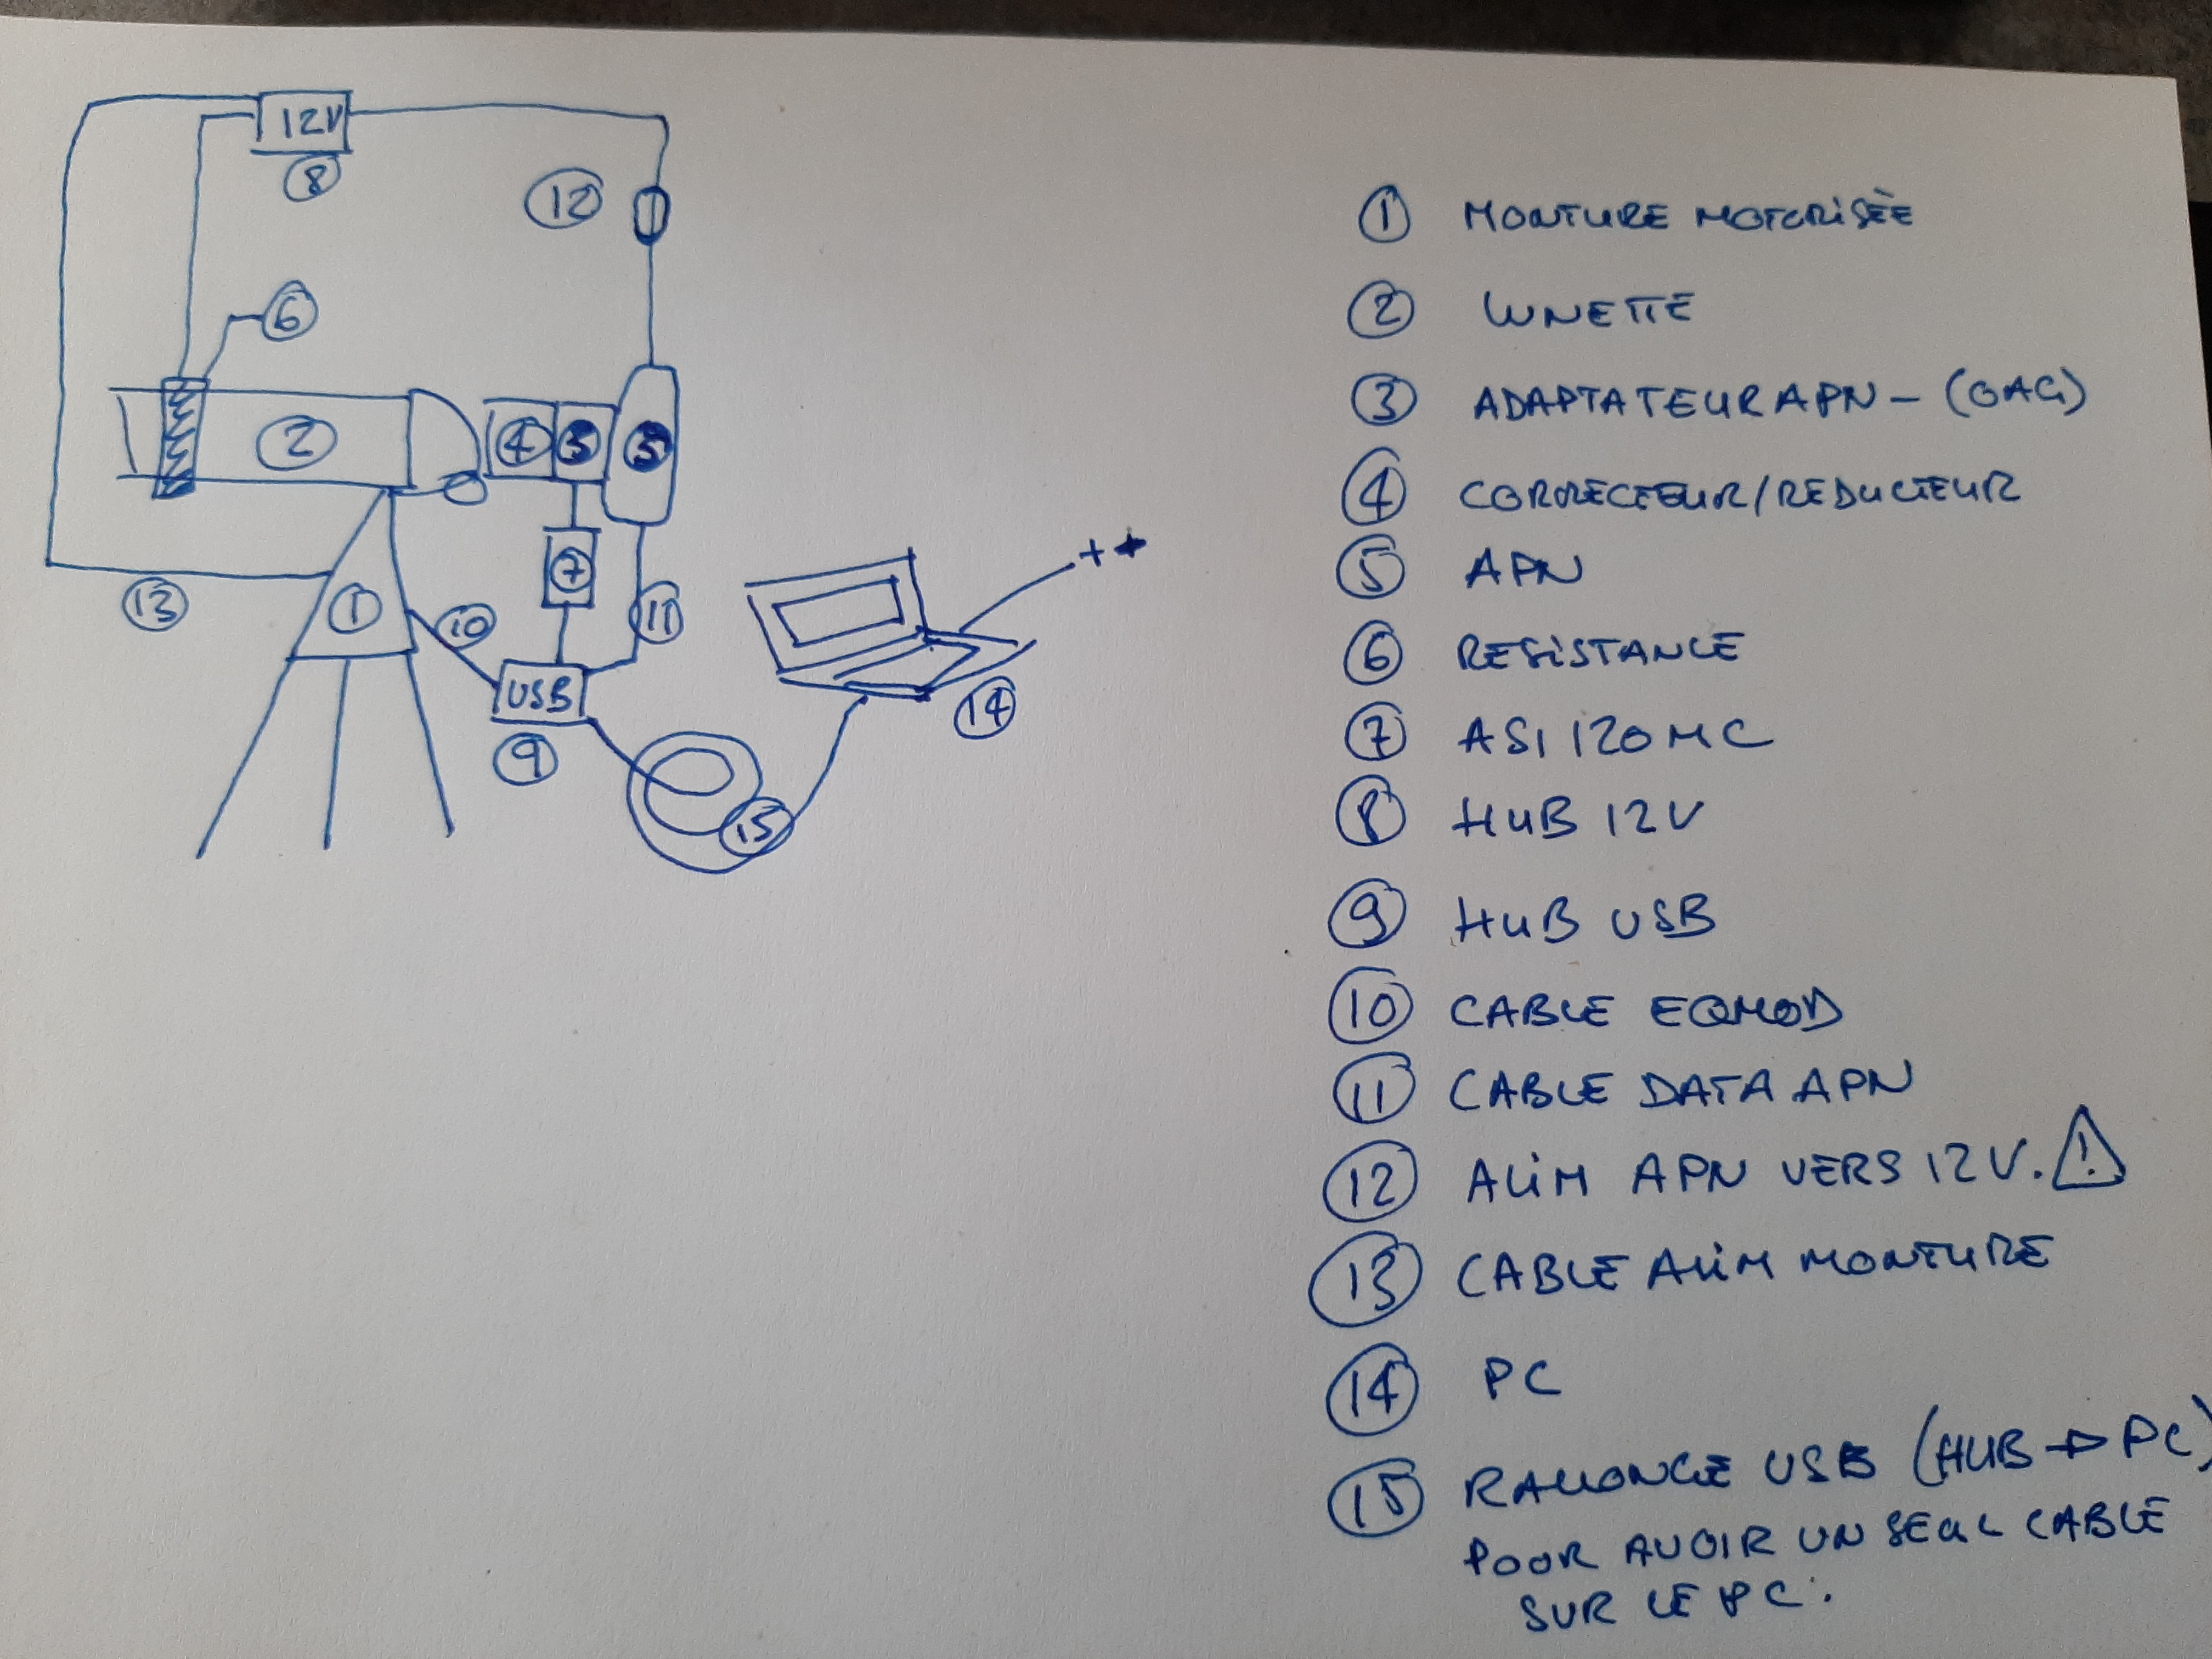 12V
8
12
6
2
4
3
5
7
13
1
10
11
USB
9
15
14
++
1 MONTURE MOTORISÉE
2 LUNETTE
3 ADAPTATEUR APN - (OAG)
4 CORRECTEUR/REDUCTEUR
5 APN
6 RESISTANCE
7 ASI 120 MC
8 HUB 12V
9 HUB USB
10 CABLE EQMOD
11 CABLE DATA APN
12 ALIM APN VERS 12V. !
13 CABLE ALIM MONTURE
14 PC
15 RALLONGE USB (HUB → PC)
POUR AVOIR UN SEUL CABLE
SUR LE PC.